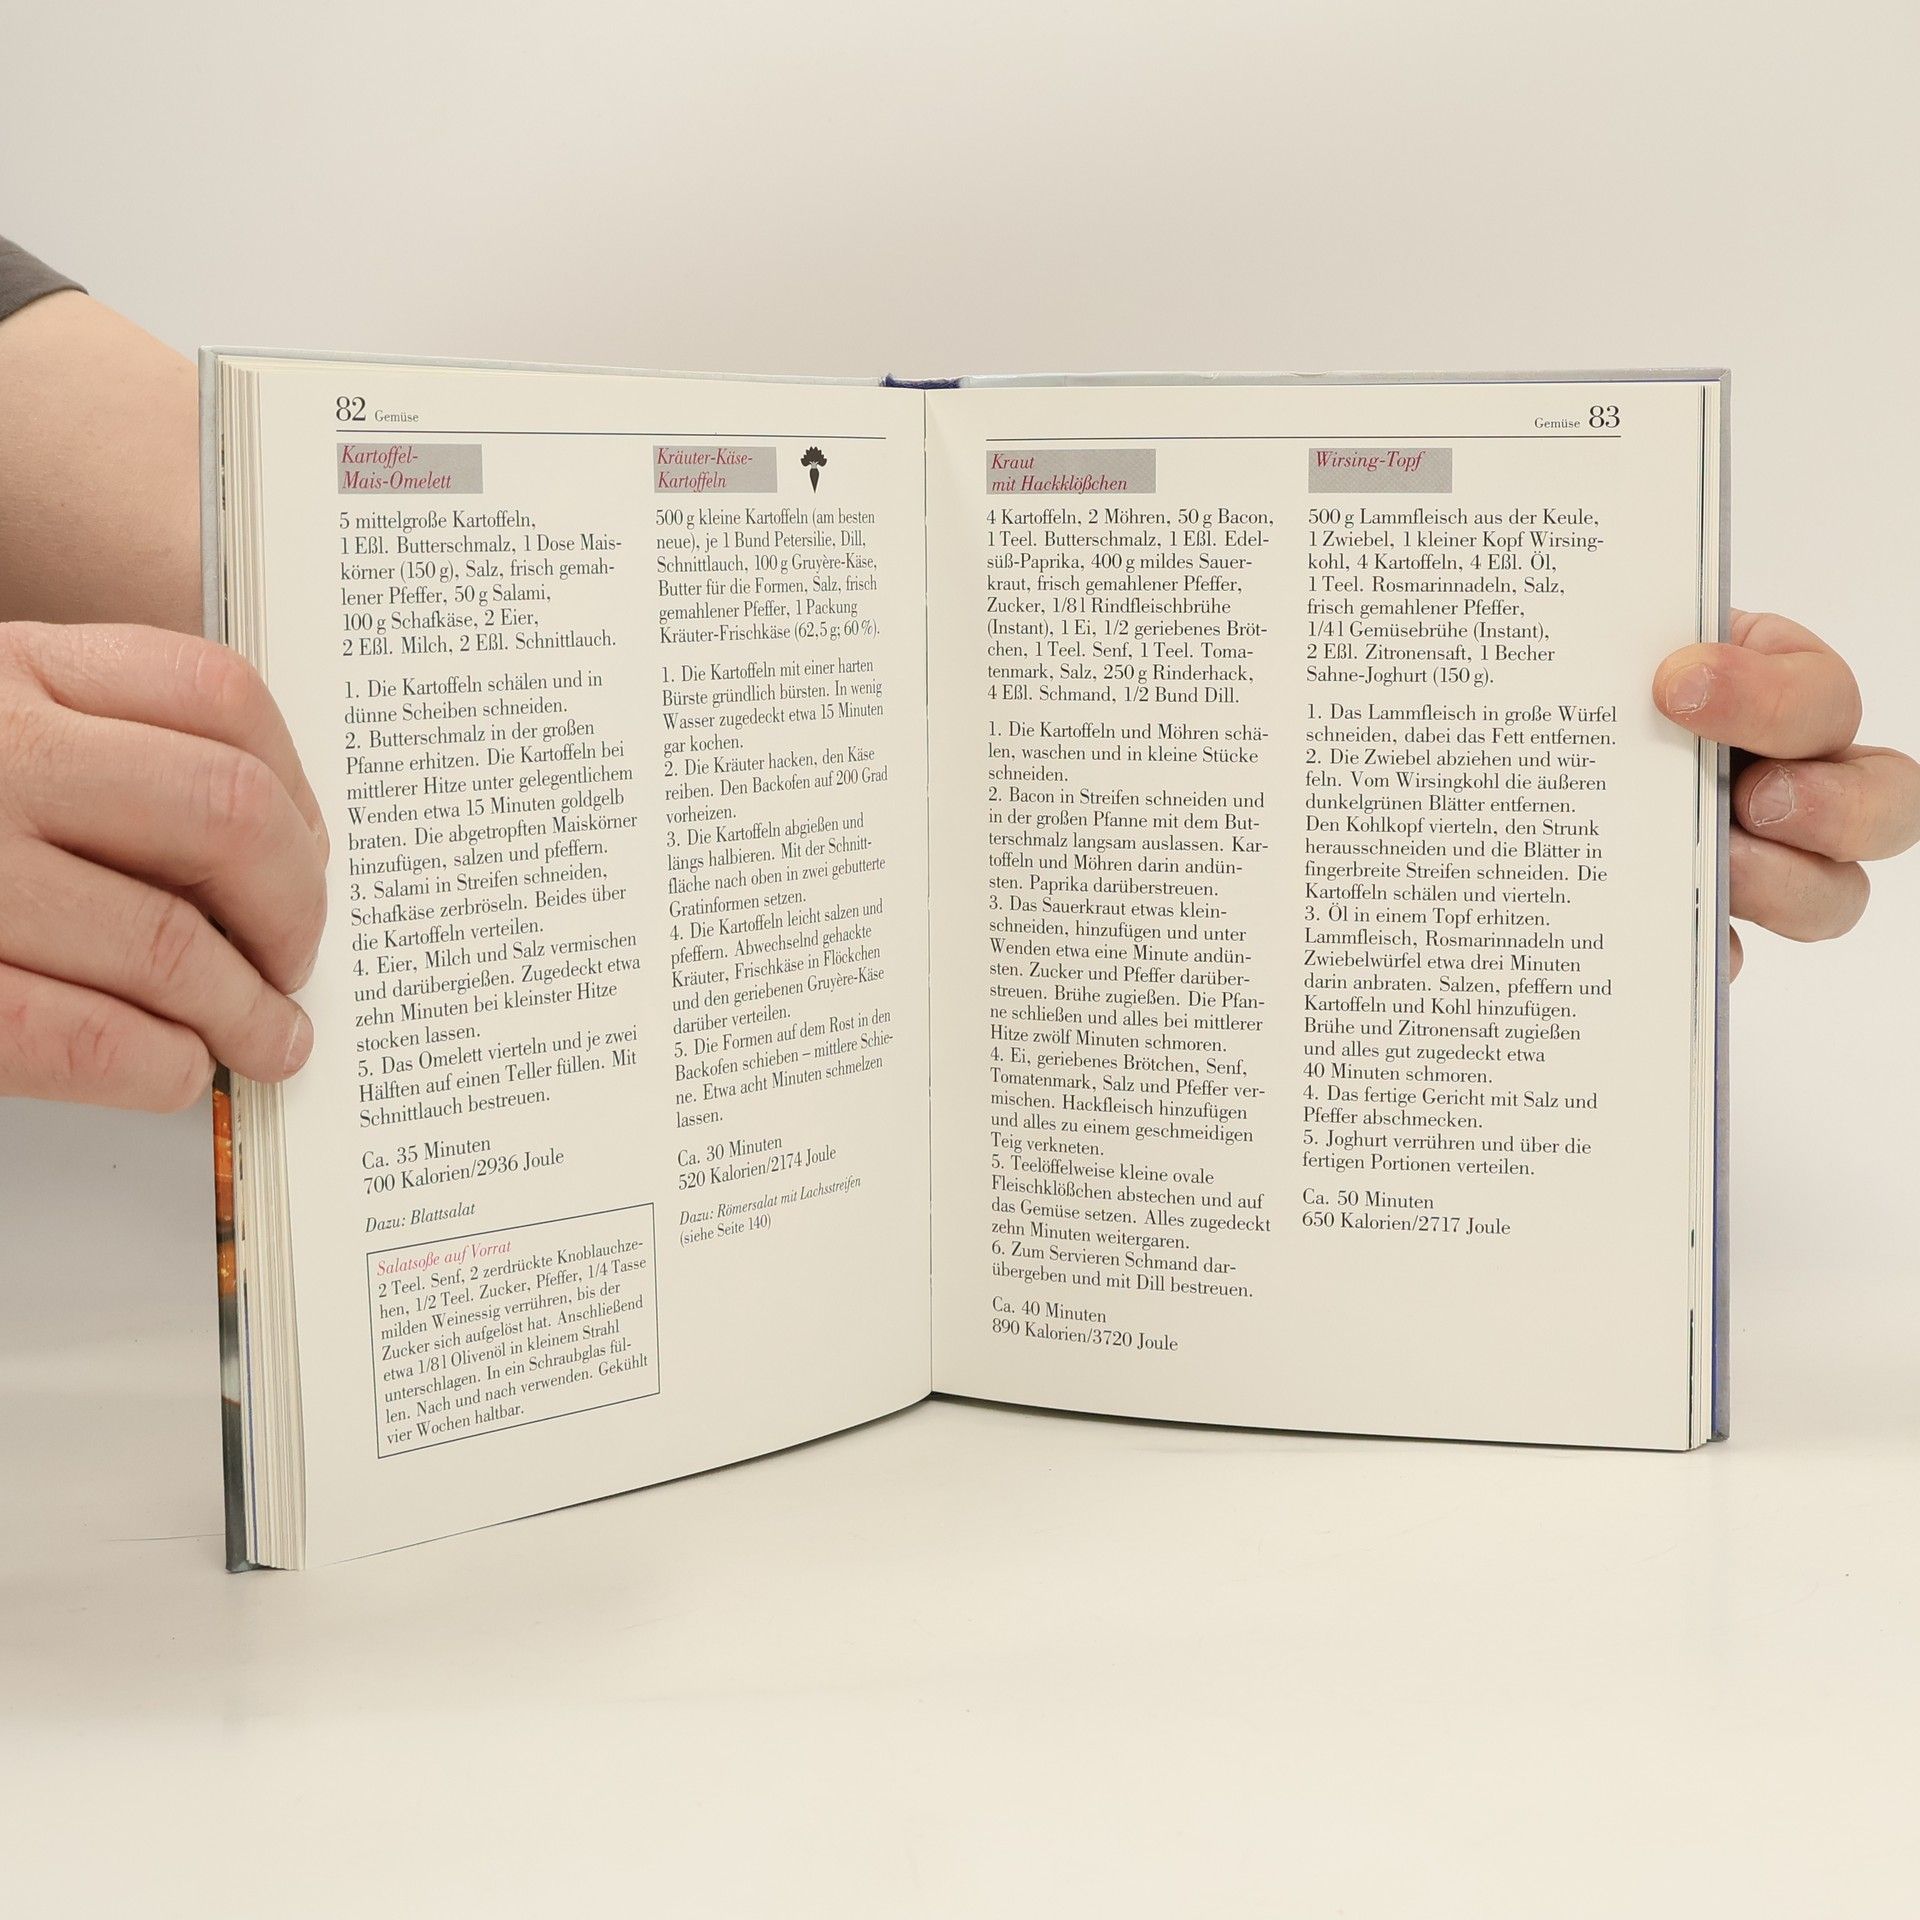 82 Gemüse
Kartoffel-
Mais-Omelett
5 mittelgroße Kartoffeln,
1 Eßl. Butterschmalz, 1 Dose Mais-
körner (150 g), Salz, frisch gemah-
lener Pfeffer, 50 g Salami,
100 g Schafkäse, 2 Eier,
2 Eßl. Milch, 2 Eßl. Schnittlauch.
1. Die Kartoffeln schälen und in
dünne Scheiben schneiden.
2. Butterschmalz in der großen
Pfanne erhitzen. Die Kartoffeln bei
mittlerer Hitze unter gelegentlichem
Wenden etwa 15 Minuten goldgelb
braten. Die abgetropften Maiskörner
hinzufügen, salzen und pfeffern.
3. Salami in Streifen schneiden,
Schafkäse zerbröseln. Beides über
die Kartoffeln verteilen.
4. Eier, Milch und Salz vermischen
und darübergießen. Zugedeckt etwa
zehn Minuten bei kleinster Hitze
stocken lassen.
5. Das Omelett vierteln und je zwei
Hälften auf einen Teller füllen. Mit
Schnittlauch bestreuen.
Ca. 35 Minuten
700 Kalorien/2936 Joule
Dazu: Blattsalat
Salatsoße auf Vorrat
2 Teel. Senf, 2 zerdrückte Knoblauchze-
hen, 1/2 Teel. Zucker, Pfeffer, 1/4 Tasse
milden Weinessig verrühren, bis der
Zucker sich aufgelöst hat. Anschließend
etwa 1/8 l Olivenöl in kleinem Strahl
unterschlagen. In ein Schraubglas fül-
len. Nach und nach verwenden. Gekühlt
vier Wochen haltbar.
Kräuter-Käse-
Kartoffeln
500 g kleine Kartoffeln (am besten
neue), je 1 Bund Petersilie, Dill,
Schnittlauch, 100 g Gruyère-Käse,
Butter für die Formen, Salz, frisch
gemahlener Pfeffer, 1 Packung
Kräuter-Frischkäse (62,5 g; 60 %).
1. Die Kartoffeln mit einer harten
Bürste gründlich bürsten. In wenig
Wasser zugedeckt etwa 15 Minuten
gar kochen.
2. Die Kräuter hacken, den Käse
reiben. Den Backofen auf 200 Grad
vorheizen.
3. Die Kartoffeln abgießen und
längs halbieren. Mit der Schnitt-
fläche nach oben in zwei gebutterte
Gratinformen setzen.
4. Die Kartoffeln leicht salzen und
pfeffern. Abwechselnd gehackte
Kräuter, Frischkäse in Flöckchen
und den geriebenen Gruyère-Käse
darüber verteilen.
5. Die Formen auf dem Rost in den
Backofen schieben – mittlere Schie-
ne. Etwa acht Minuten schmelzen
lassen.
Ca. 30 Minuten
520 Kalorien/2174 Joule
Dazu: Römersalat mit Lachsstreifen
(siehe Seite 140)
Gemüse 83
Kraut
mit Hackklößchen
4 Kartoffeln, 2 Möhren, 50 g Bacon,
1 Teel. Butterschmalz, 1 Eßl. Edel-
süß-Paprika, 400 g mildes Sauer-
kraut, frisch gemahlener Pfeffer,
Zucker, 1/8 l Rindfleischbrühe
(Instant), 1 Ei, 1/2 geriebenes Bröt-
chen, 1 Teel. Senf, 1 Teel. Toma-
tenmark, Salz, 250 g Rinderhack,
4 Eßl. Schmand, 1/2 Bund Dill.
1. Die Kartoffeln und Möhren schä-
len, waschen und in kleine Stücke
schneiden.
2. Bacon in Streifen schneiden und
in der großen Pfanne mit dem But-
terschmalz langsam auslassen. Kar-
toffeln und Möhren darin andün-
sten. Paprika darüberstreuen.
3. Das Sauerkraut etwas klein-
schneiden, hinzufügen und unter
Wenden etwa eine Minute andün-
sten. Zucker und Pfeffer darüber-
streuen. Brühe zugießen. Die Pfan-
ne schließen und alles bei mittlerer
Hitze zwölf Minuten schmoren.
4. Ei, geriebenes Brötchen, Senf,
Tomatenmark, Salz und Pfeffer ver-
mischen. Hackfleisch hinzufügen
und alles zu einem geschmeidigen
Teig verkneten.
5. Teelöffelweise kleine ovale
Fleischklößchen abstechen und auf
das Gemüse setzen. Alles zugedeckt
zehn Minuten weitergaren.
6. Zum Servieren Schmand dar-
übergeben und mit Dill bestreuen.
Ca. 40 Minuten
890 Kalorien/3720 Joule
Wirsing-Topf
500 g Lammfleisch aus der Keule,
1 Zwiebel, 1 kleiner Kopf Wirsing-
kohl, 4 Kartoffeln, 4 Eßl. Öl,
1 Teel. Rosmarinnadeln, Salz,
frisch gemahlener Pfeffer,
1/4 l Gemüsebrühe (Instant),
2 Eßl. Zitronensaft, 1 Becher
Sahne-Joghurt (150 g).
1. Das Lammfleisch in große Würfel
schneiden, dabei das Fett entfernen.
2. Die Zwiebel abziehen und wür-
feln. Vom Wirsingkohl die äußeren
dunkelgrünen Blätter entfernen.
Den Kohlkopf vierteln, den Strunk
herausschneiden und die Blätter in
fingerbreite Streifen schneiden. Die
Kartoffeln schälen und vierteln.
3. Öl in einem Topf erhitzen.
Lammfleisch, Rosmarinnadeln und
Zwiebelwürfel etwa drei Minuten
darin anbraten. Salzen, pfeffern und
Kartoffeln und Kohl hinzufügen.
Brühe und Zitronensaft zugießen
und alles gut zugedeckt etwa
40 Minuten schmoren.
4. Das fertige Gericht mit Salz und
Pfeffer abschmecken.
5. Joghurt verrühren und über die
fertigen Portionen verteilen.
Ca. 50 Minuten
650 Kalorien/2717 Joule